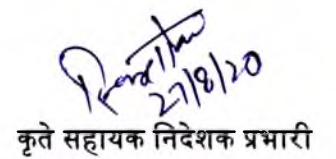 27/8/20
कृते सहायक निदेशक प्रभारी